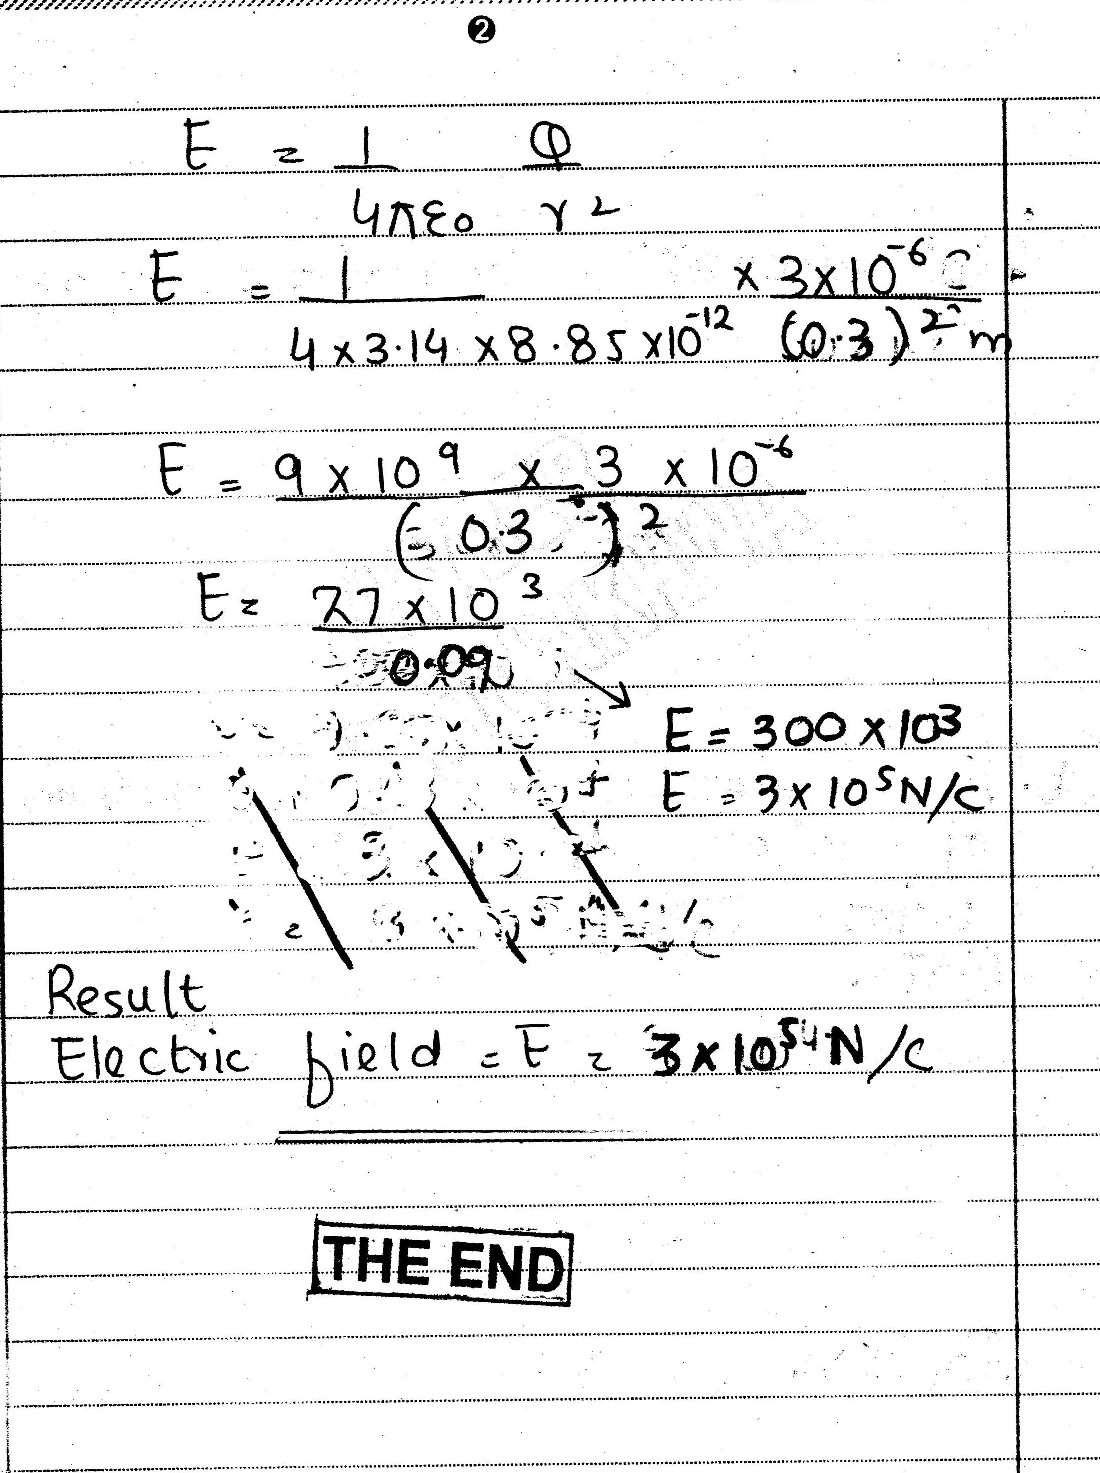 2
E = 1/4πε0 Q/r²
E = 1/4×3.14×8.85×10⁻¹² × 3×10⁻⁶ C/(0.3)² m
E = 9×10⁹ × 3 ×10⁻⁶/(0.3)²
E = 27×10³/0.09
E = 300×10³
E = 3×10⁵N/C
Result
Electric field = E = 3×10⁵ N/C
THE END